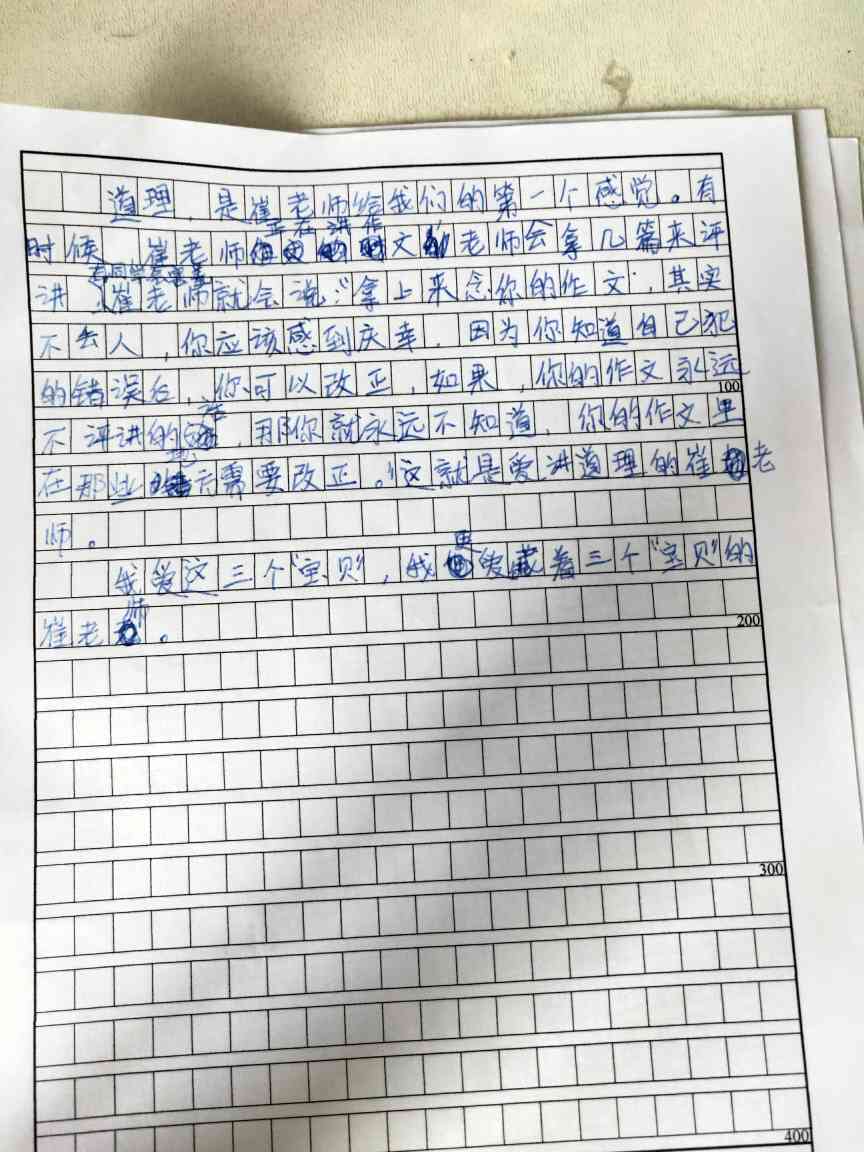 道理，是崔老师给我们的第一个感觉。有
时候，崔老师正在讲作文，老师会拿几篇来评
讲，有同学害羞，崔老师就会说："拿上来念你的作文，其实
不丢人，你应该感到庆幸，因为你知道自己犯
的错误后，你可以改正，如果，你的作文永远
不评讲的话，那你就永远不知道，你的作文里
在那些地方需要改正。"这就是爱讲道理的崔老
师。
我爱这三个"宝贝"，我更爱藏着三个"宝贝"的
崔老师。
100
200
300
400